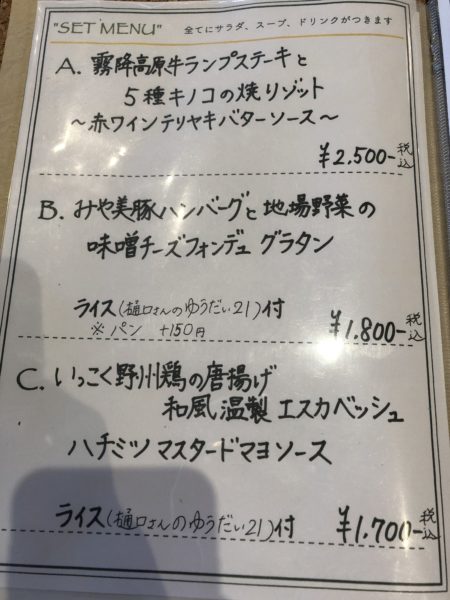 "SET MENU" 全てにサラダ、スープ、ドリンクがつきます
A. 霧降高原牛ランプステーキと
5種キノコの焼リゾット
~赤ワインテリヤキバターソース~
¥2.500- 税込
B. みや美豚ハンバーグと地場野菜の
味噌チーズフォンデュ グラタン
ライス(樋口さんのゆうだい21)付
※パン +150円
¥1.800- 税込
C. いっこく野州鶏の唐揚げ
和風温製 エスカベッシュ
ハチミツ マスタードマヨソース
ライス(樋口さんのゆうだい21)付 ¥1.700- 税込